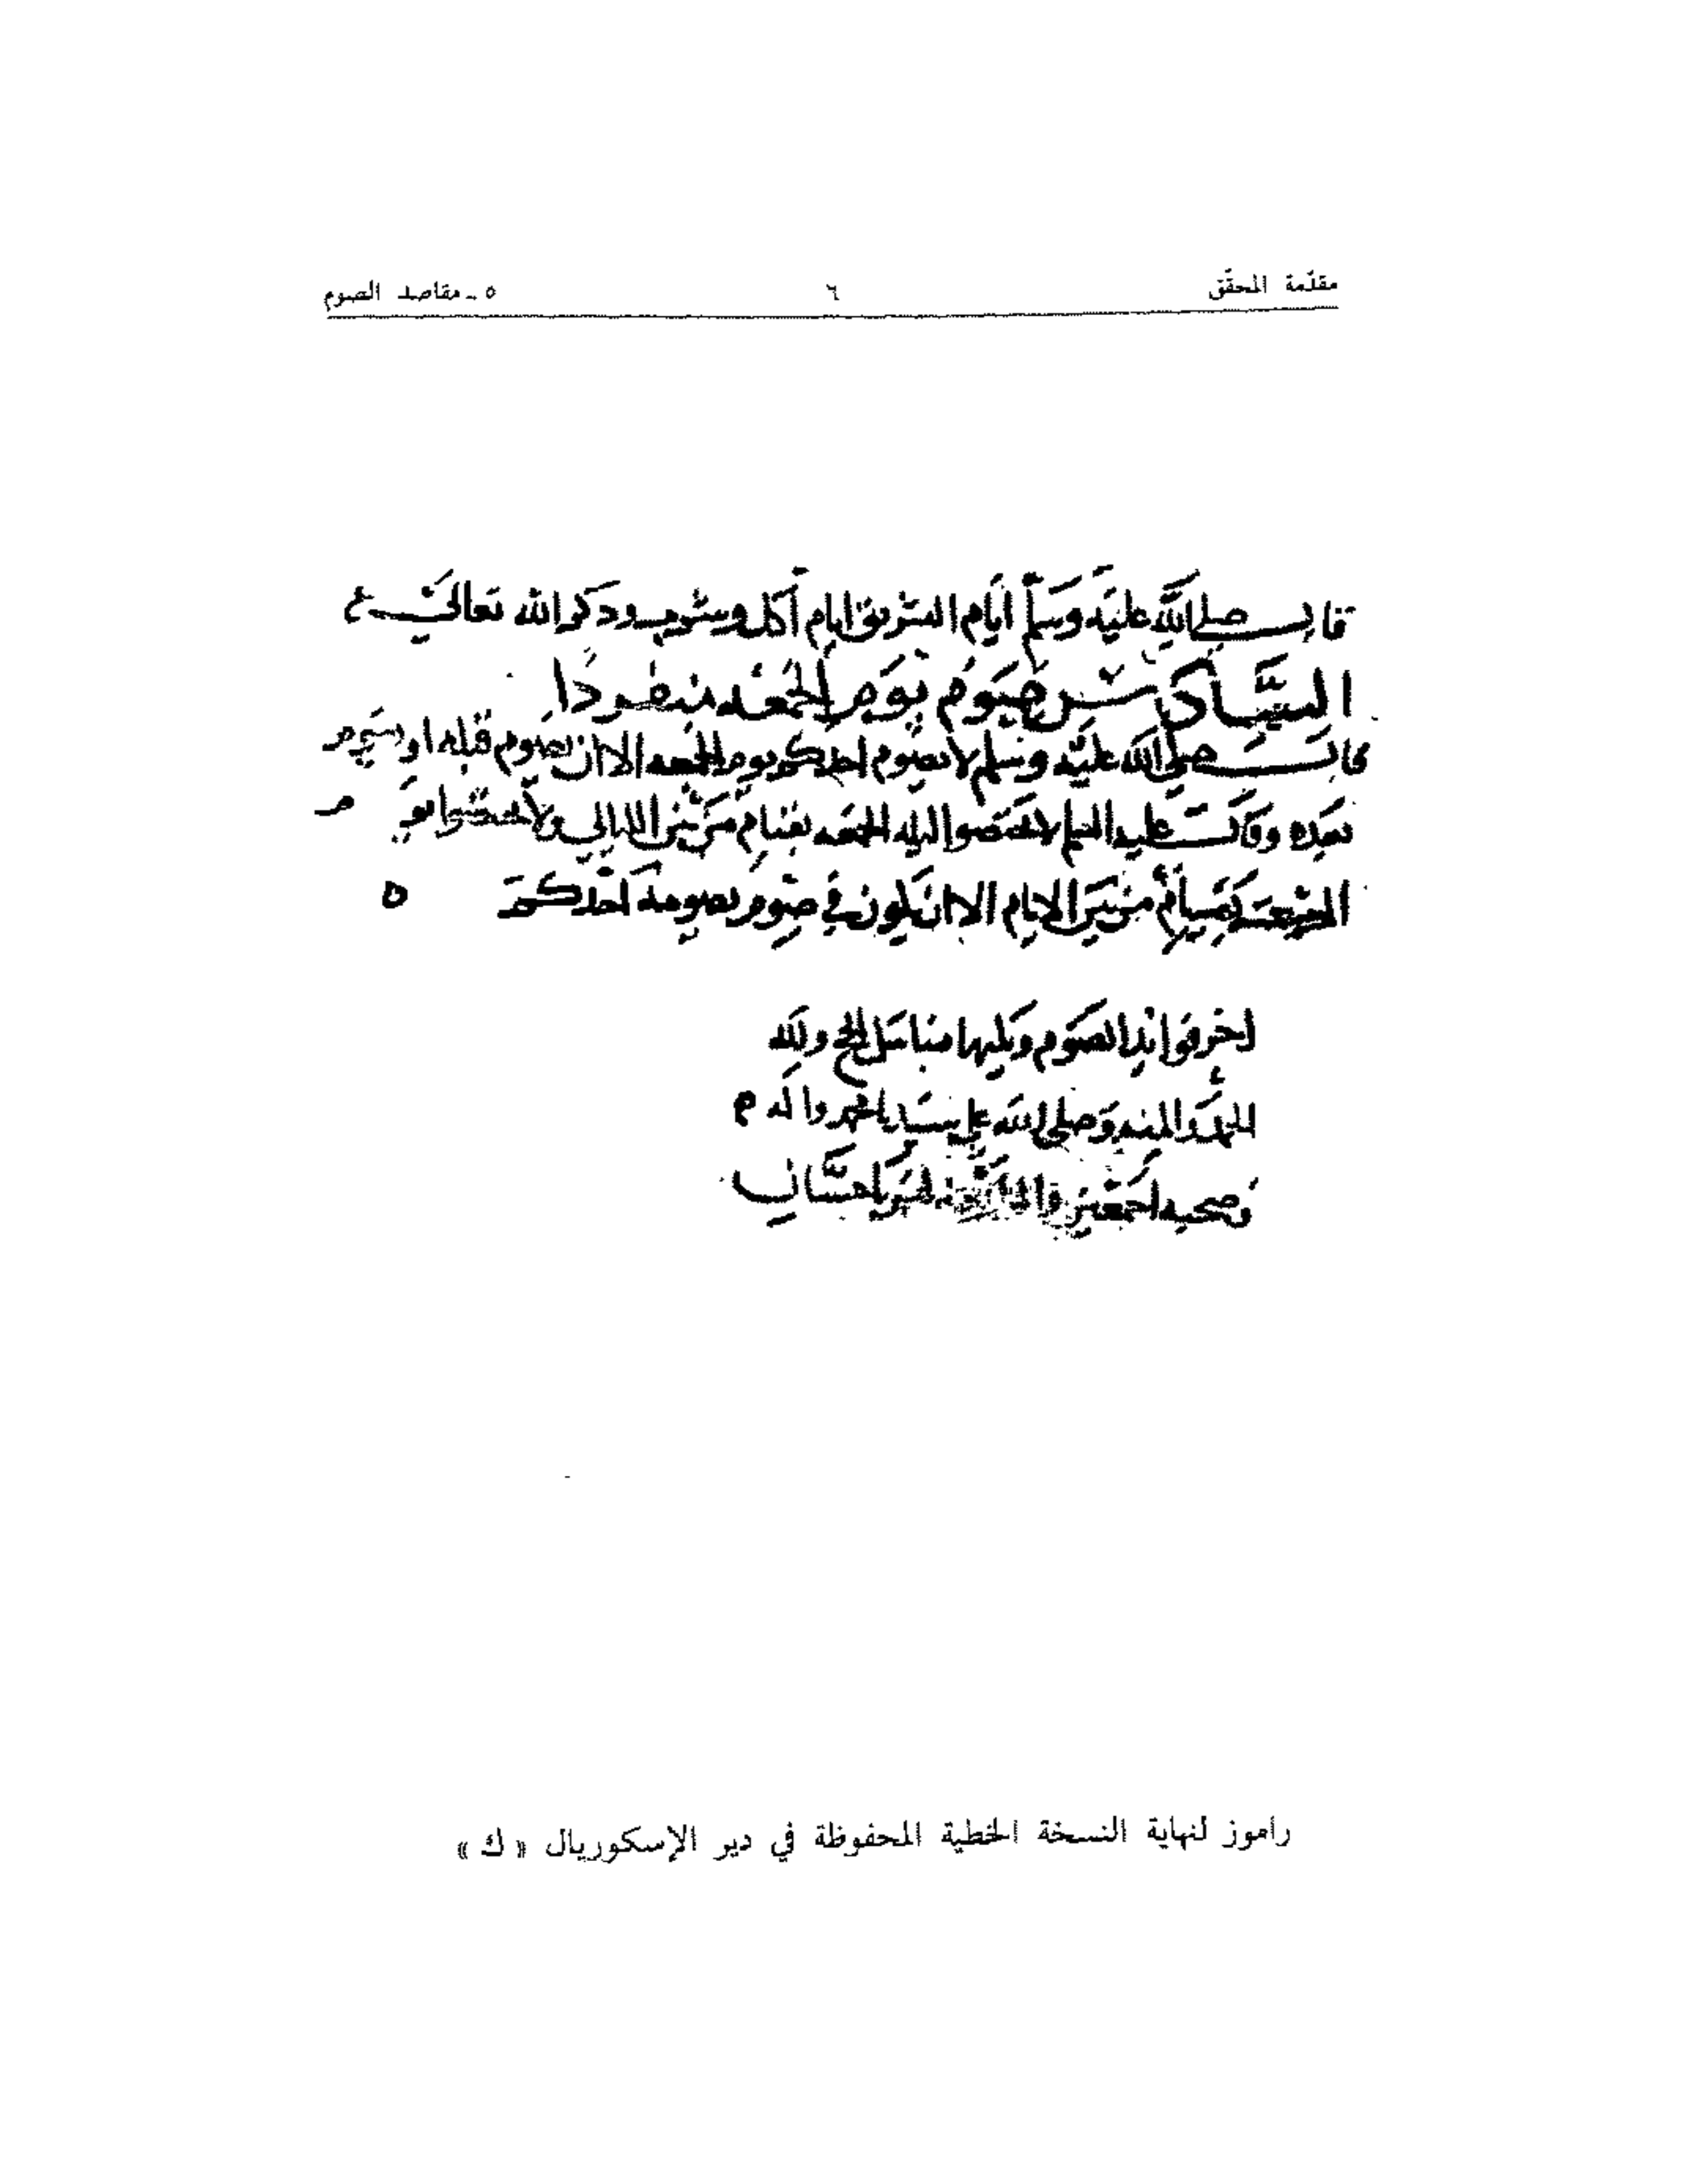 مقدّمة المحقّق ٦ ٥ ـ مقاصد الصوم
قال صلى الله عليه وسلم ايام التشريق ايام أكل وشرب وذكر الله تعالى
السادس صوم يوم الجمعه منفردا
قال صلى الله عليه وسلم لا يصوم احدكم يوم الجمعه الا ان يصوم قبله او يصوم
بعده وقال عليه السلم لا تختصوا ليله الجمعه بقيام من بين الليالي ولا تختصوا يوم
الجمعة بصيام من بين الايام الا ان يكون في صوم يصومه احدكم ه
اخر فوائد الصوم ويليها مناسك الحج ولله
الحمد والمنه وصلى الله على سيدنا محمد واله
وصحبه اجمعين باحسان
راموز لنهاية النسخة الخطية المحفوظة في دير الإسكوريال « ك »